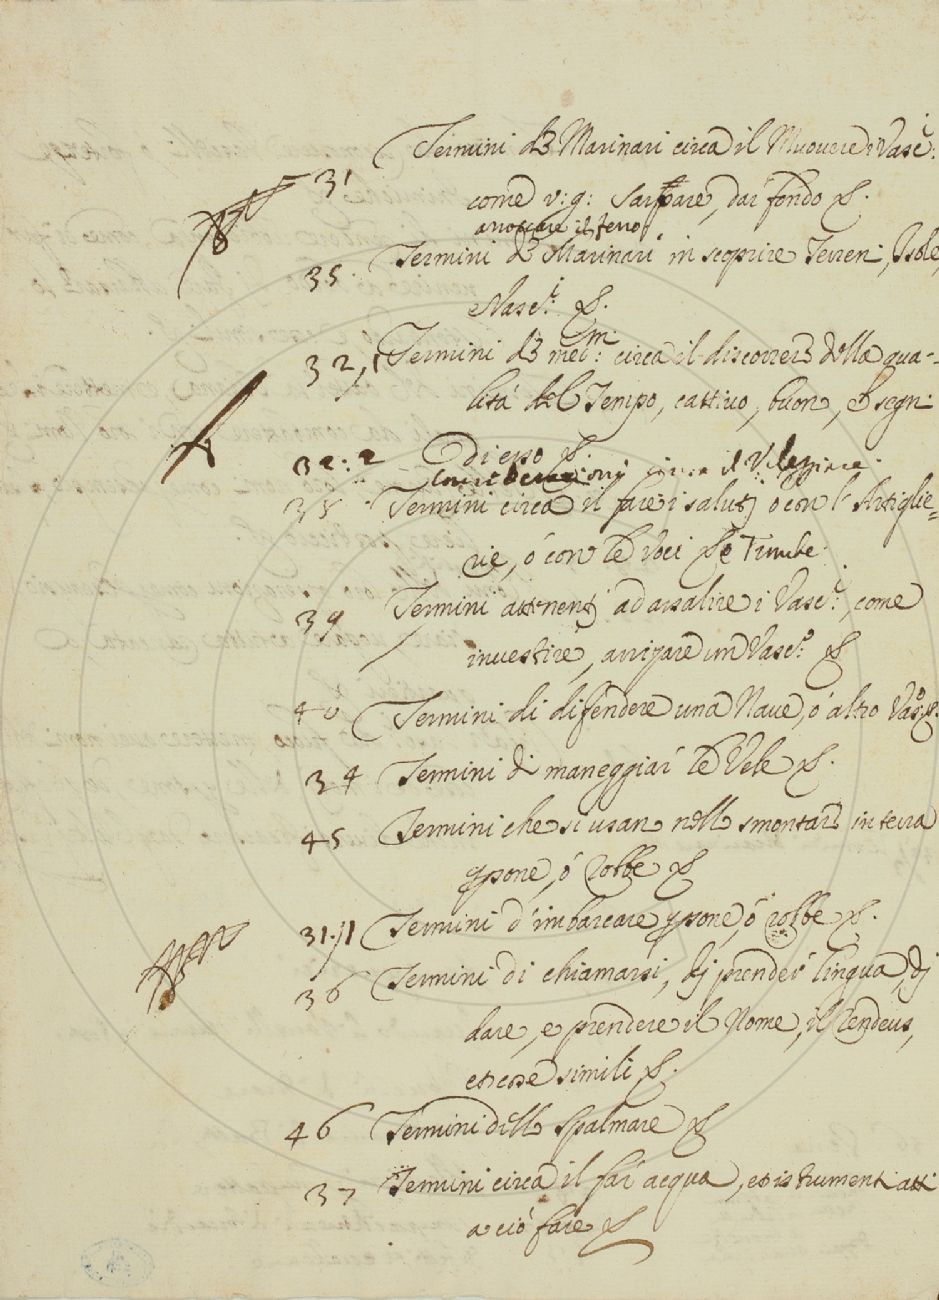 31 Termini de Marinari circa il Muouere i Vasc:
come v:g: Sarpare, dar fondo &.
il ferro
35 Termini de Marinari in scoprire Terren, Isole,
e Vasc:i &.
32/1 Termini de med:mi circa il discorrere della qua-
lità del Tempo, cattiuo, buon, e segn:
di esso &.
32:2 Considerazioni circa il Veleggiare.
38 Termini circa il fare i saluti o con l'Artiglie=
rie, ò con le Voci &e Trombe.
39 Termini attinenti ad assalire i Vasc:i, come
inuestire, arripare un Vasc:o &
40 Termini di difendere una Naue, ò altro Vas:o &.
34 Termini di maneggiar le Vele &.
45 Termini che si usan nello smontare in terra
psone, ò robbe &
31.11 Termini d'imbarcare psone, ò robbe &.
36 Termini di chiamarsi, di prender lingua, di
dare, e prendere il Nome, il Rendeus,
et cose simili &.
46 Termini dello Spalmare &
37 Termini circa il far acqua, et istrumenti atti
a ciò fare &